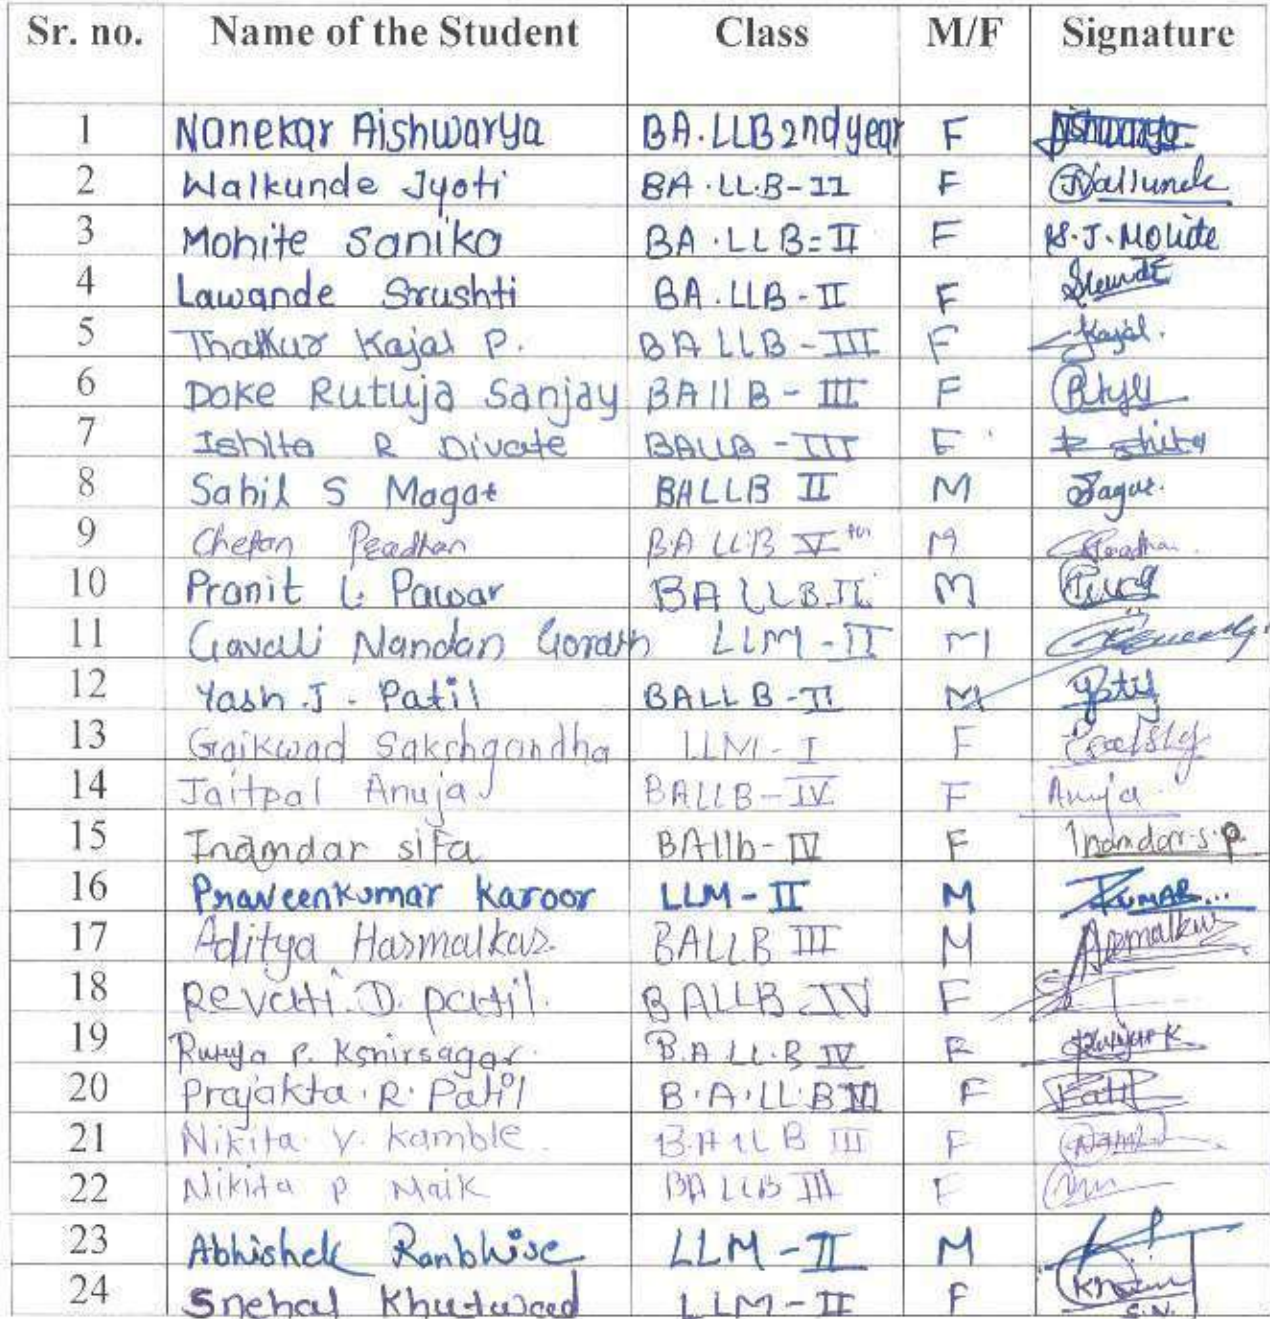 Sr. no. Name of the Student Class M/F Signature
1 Nanekar Aishwarya BA.LLB 2nd year F Aishwarya
2 Walkunde Jyoti BA.LL.B-II F
3 Mohite Sanika BA.LLB=II F S.J.Mohite
4 Lawande Srushti BA.LLB-II F
5 Thakur Kajal P. BA LLB-III F Kajal.
6 Doke Rutuja Sanjay BAllB-III F
7 Ishita R Divate BALLB-III F
8 Sahil S Magat BALLB II M
9 Chetan Peadhan BA LLB Vth M
10 Pranit L. Pawar BALLB.II M
11 Gavali Nandan Gorakh LLM-II M
12 Yash.J. Patil BALLB-II M Patil
13 Gaikwad Sakshgandha LLM-I F
14 Jaitpal Anuja BALLB-IV F Anuja
15 Inamdar sifa BAllb-IV F Inamdar.s.p.
16 Praveenkumar Karoor LLM-II M Kumar...
17 Aditya Harmalkar. BALLB III M
18 Revati.D. patil. BALLB-IV F
19 P. Kshirsagar. B.A LL.B IV F
20 Prajakta.R.Patil B.A.LL.B III F Patil
21 Nikita V. Kamble. B.A LLB III F
22 Nikita P Naik BA LLB III F
23 Abhishek Ranbhise LLM-II M
24 Snehal Khutwad LLM-II F